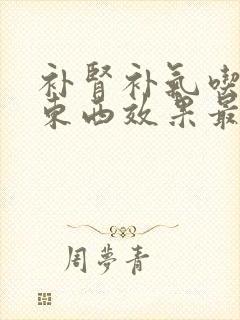 补肾补气喫
东西效果最
周夢青